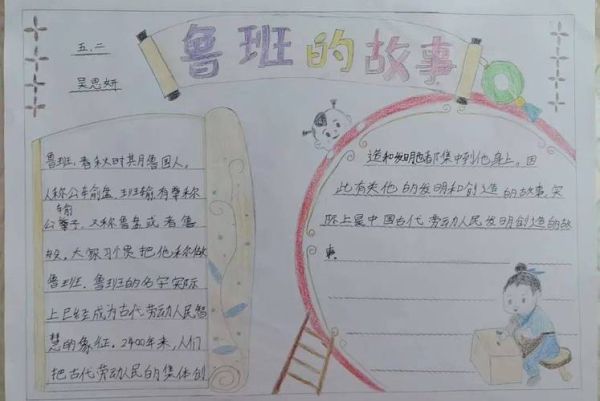 鲁班的故事
五.二
吴思妍
鲁班,春秋时其月鲁国人,
人称公车俞盘、班输有尊称
输
公輦子、又称鲁盘或者鲁
般,大家习惯把他称做
鲁班.鲁班的名字实际
上已经成为古代劳动人民智
慧的象征。2400年来,人们
把古代劳动人民的集体创
造和发明也都集中到他身上,因
此有关他的发明和创造的故事,实
际上是中国古代劳动人民发明创造的故
事